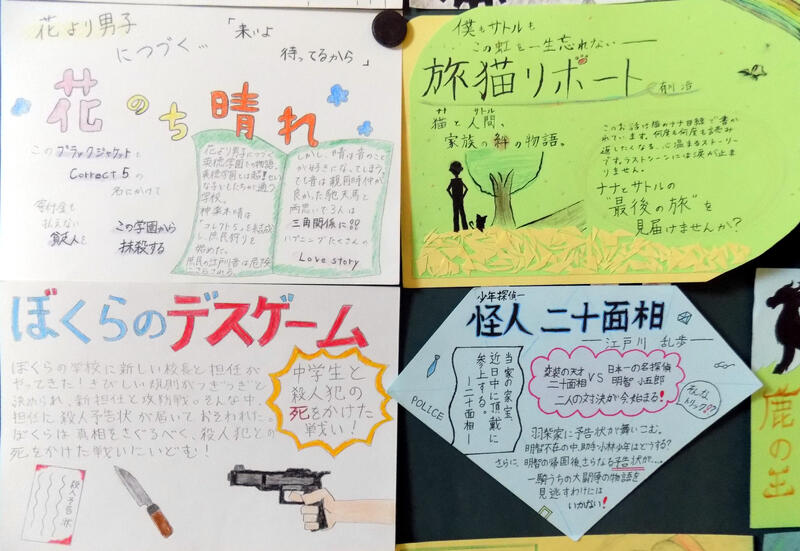 花より男子
につづく…
「来いよ
待ってるから」
花のち晴れ
この ブラックジャケットと
Correct 5 の
名にかけて
寄付金も
払えない
貧乏人を
この学園から
抹殺する
花より男子につづく
英徳学園での物語。
英徳学園とは超!セレブ
な子どもたちが通う
学校。
神楽木晴は
コレクト5を結成し
庶民狩りを
始めた。
庶民の江戸川音は危険
にさらされる。
しかし、晴は音のこと
が好きになってしまう。
でも音は親同士仲が
良かった馳天馬と
両思いで3人は
三角関係に!?
ハプニングだくさんの
Love story
僕もサトルも
この虹を一生忘れない――
旅猫リポート 有川浩
猫と人間、
ナナ サトル
家族の絆の物語。
このお話は猫のナナ目線で書か
れています。何度も何度も読み
返したくなる、心温まるストーリー
です。ラストシーンには涙が止ま
りません。
ナナとサトルの
"最後の旅"を
見届けませんか?
ぼくらのデスゲーム
ぼくらの学校に新しい校長と担任が
やってきた!きびしい規則がつぎつぎと
決められ、新担任と攻防戦。そんな中、
担任に殺人予告状が届いておそわれた。
ぼくらは真相をさぐるべく、殺人犯との
死をかけた戦いにいどむ!
中学生と
殺人犯の
死をかけた
戦い!
殺人予告状
少年探偵
怪人二十面相
―江戸川 乱歩―
当家の家宝、
近日中に頂戴に
参上する。
―二十面相―
POLICE
変装の天才
二十面相
VS
日本一の名探偵
明智小五郎
二人の対決が今始まる!
そんな
トリック!?
羽柴家に予告状が舞いこむ。
明智不在の中、助手・小林少年はどうする?
さらに、明智の帰国後、さらなる予告状が…。
一騎うちの大闘争の物語を
見逃すわけには
いかない!
鹿の王